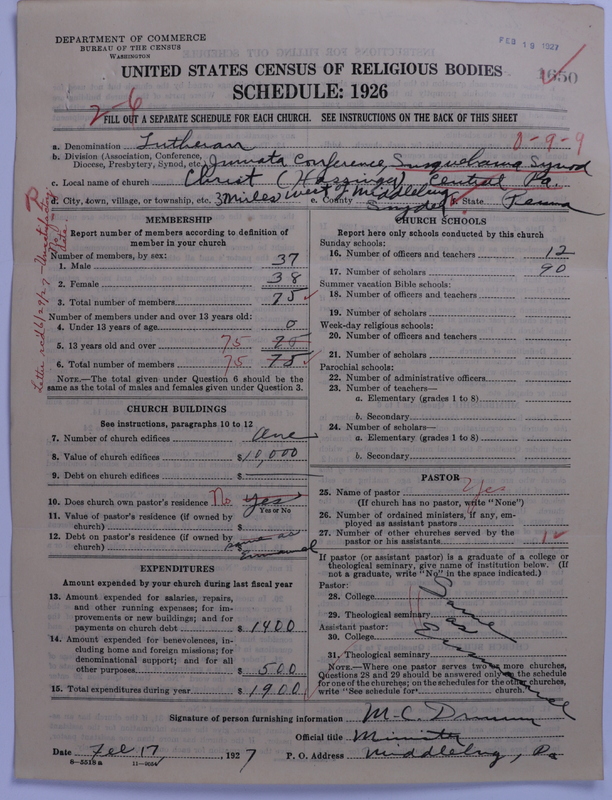 DEPARTMENT OF COMMERCE
BUREAU OF THE CENSUS
WASHINGTON
FEB 18 1927
1650
UNITED STATES CENSUS OF RELIGIOUS BODIES
SCHEDULE: 1926
2-6
FILL OUT A SEPARATE SCHEDULE FOR EACH CHURCH. SEE INSTRUCTIONS ON THE BACK OF THIS SHEET
0-9-9
a. Denomination Lutheran
b. Division (Association, Conference, Diocese, Presbytery, Synod, etc.) Juniata Conference, Susquehanna Synod
Central Pa.
c. Local name of church Christ (Hassinger)
d. City, town, village, or township, etc. 3 miles west of Middleburg e. County Snyder f. State Penna
MEMBERSHIP
Report number of members according to definition of
member in your church
Number of members, by sex:
1. Male 37
2. Female 38
3. Total number of members 75
Number of members under and over 13 years old:
4. Under 13 years of age 0
5. 13 years old and over 75 75
6. Total number of members 75 75
NOTE.—The total given under Question 6 should be
same as the total of males and females given under Question 3.
CHURCH BUILDINGS
See instructions, paragraphs 10 to 12
7. Number of church edifices One
8. Value of church edifices $10,000
9. Debt on church edifices $
10. Does church own pastor's residence No Yes
Yes or No
11. Value of pastor's residence (if owned by
church) $
12. Debt on pastor's residence (if owned by
church) $ same as
Emmanuel
EXPENDITURES
Amount expended by your church during last fiscal year
13. Amount expended for salaries, repairs,
and other running expenses; for im-
provements or new buildings; and for
payments on church debt $1400
14. Amount expended for benevolences, in-
cluding home and foreign missions; for
denominational support; and for all
other purposes $500
15. Total expenditures during year $1900
CHURCH SCHOOLS
Report here only schools conducted by this church
Sunday schools:
16. Number of officers and teachers 12
17. Number of scholars 90
Summer vacation Bible schools:
18. Number of officers and teachers
19. Number of scholars
Week-day religious schools:
20. Number of officers and teachers
21. Number of scholars
Parochial schools:
22. Number of administrative officers
23. Number of teachers—
a. Elementary (grades 1 to 8)
b. Secondary
24. Number of scholars—
a. Elementary (grades 1 to 8)
b. Secondary
PASTOR
25. Name of pastor Yes
(If church has no pastor, write "None")
26. Number of ordained ministers, if any, em-
ployed as assistant pastors
27. Number of other churches served by the
pastor or his assistants 1
If pastor (or assistant pastor) is a graduate of a college or
theological seminary, give name of institution below. (If
not a graduate, write "No" in the space indicated.)
Pastor:
28. College
29. Theological seminary
Assistant pastor:
30. College
31. Theological seminary
Same as Emmanuel
NOTE.—Where one pastor serves two or more churches,
Questions 28 and 29 should be answered only on the schedule
for one of the churches; on the schedules for the other churches,
write "See schedule for church."
Signature of person furnishing information M. C. Drumm
Official title Minister
Date Feb 17, 1927 P. O. Address Middleburg, Pa
8-5518 a